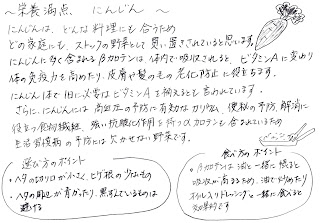 ～栄養満点 にんじん～
にんじんは、どんな料理にも合うため
どの家庭にも、ストックの野菜として買い置きされていると思います。
にんじんに多く含まれるβカロテンは、体内で吸収されると、ビタミンAに変わり
体の免疫力を高めたり、皮膚や髪の毛の老化防止に役立ちます。
にんじん1本で1日に必要なビタミンAを補えるとも言われています。
さらに、にんじんには高血圧の予防に有効なカリウム、便秘の予防、解消に
役立つ食物繊維、強い抗酸化作用を持つリコピンも含まれているため
生活習慣病の予防には欠かせない野菜です。
選び方のポイント
・ヘタの切り口が小さく、ヒゲ根の少ないもの
・ヘタの周辺が青かったり、黒ずんでいるものは
避ける
食べ方のポイント
・βカロテンは油と一緒に採ると
吸収が高まるため、油で炒めたり
オイル入りドレッシングと一緒に食べると
効果的です